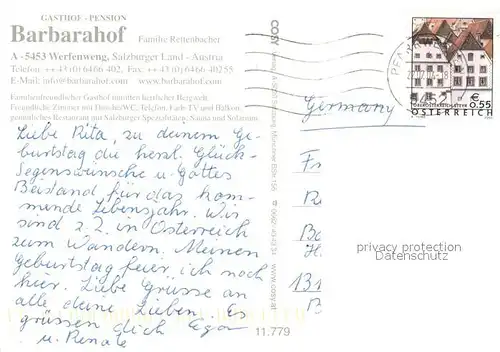 GASTHOF - PENSION
Barbarahof Familie Rettenbacher
A - 5453 Werfenweng, Salzburger Land - Austria
Telefon ++43 (0) 6466 402, Fax ++43 (0) 6466 402 55
E-Mail: info@barbarahof.com www.barbarahof.com
Familienfreundlicher Gasthof inmitten herrlicher Bergwelt.
Freundliche Zimmer mit Dusche/WC, Telefon, Farb-TV und Balkon,
gemütliches Restaurant mit Salzburger Spezialitäten, Sauna und Solarium
Liebe Rita, zu deinem Ge-
burtstag die herzl. Glück-
Segenswünsche u. Gottes
Beistand für das kom-
mende Lebensjahr. Wir
sind z. Z. in Österreich
zum Wandern. Meinen
Geburtstag feier ich noch
hier. Liebe Grüsse an
alle deine Lieben. Es
grüssen dich Egon
u. Renate
COSY
www.cosy.at
11.779
€ 0.55
ÖSTERREICH
Germany
Fr
B
131
B
privacy protection
Datenschutz